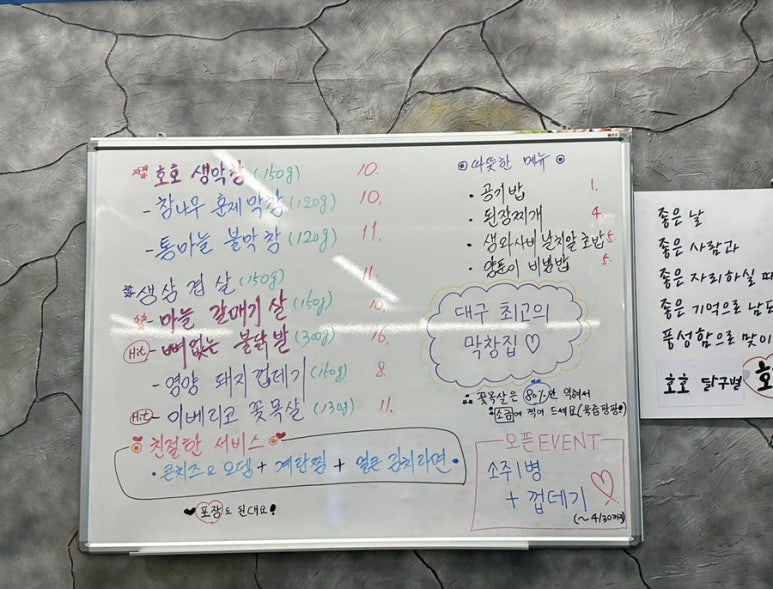 호호 생막창 (150g) 10.
- 참나무 훈제 막창 (120g) 10.
- 통마늘 불막창 (120g) 11.
생삼겹살 (150g) 11.
- 마늘 갈매기살 (150g) 10.
Hit - 뼈없는 불닭발 (300g) 16.
- 영양 돼지껍데기 (150g) 8.
Hit - 이베리코 꽃목살 (130g) 11.
친절한 서비스
· 콘치즈 & 오뎅 + 계란찜 + 얼큰 김치라면
♥ 포장도 된대요!
따뜻한 메뉴
· 공기밥 1.
· 된장찌개 4.
· 생와사비 날치알 초밥 5.
· 양푼이 비빔밥 5.
대구 최고의
막창집 ♡
꽃목살은 80%만 익혀서
소금에 찍어 드세요 (육즙팡팡)
오픈 EVENT
소주 1병
+ 껍데기
(~4/30까지)
좋은 날
좋은 사람과
좋은 자리하실 때
좋은 기억으로 남도
풍성함으로 맞이
호호 달구벌